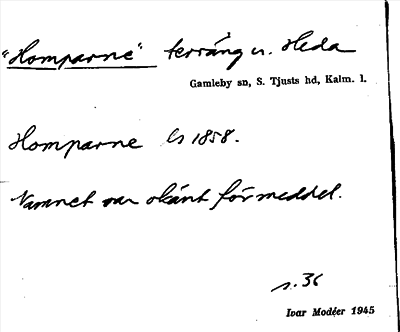 "Homparne" terräng u. Heda
Gamleby sn, S. Tjusts hd, Kalm. l.
Homparne Ls 1858.
Namnet var okänt för meddel.
s. 36
Ivar Modéer 1945